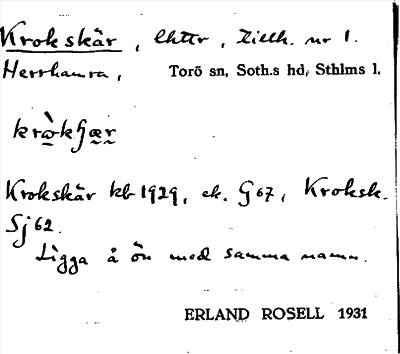 Krokskär, lhttr, tillh. nr 1.
Herrhamra, Torö sn, Soth.s hd, Sthlms l.
krò̤kʃæ̤r̤
Krokskär kb 1929, ek. G 67, Kroksk.
Sj 62.
Ligga å ön med samma namn.
ERLAND ROSELL 1931